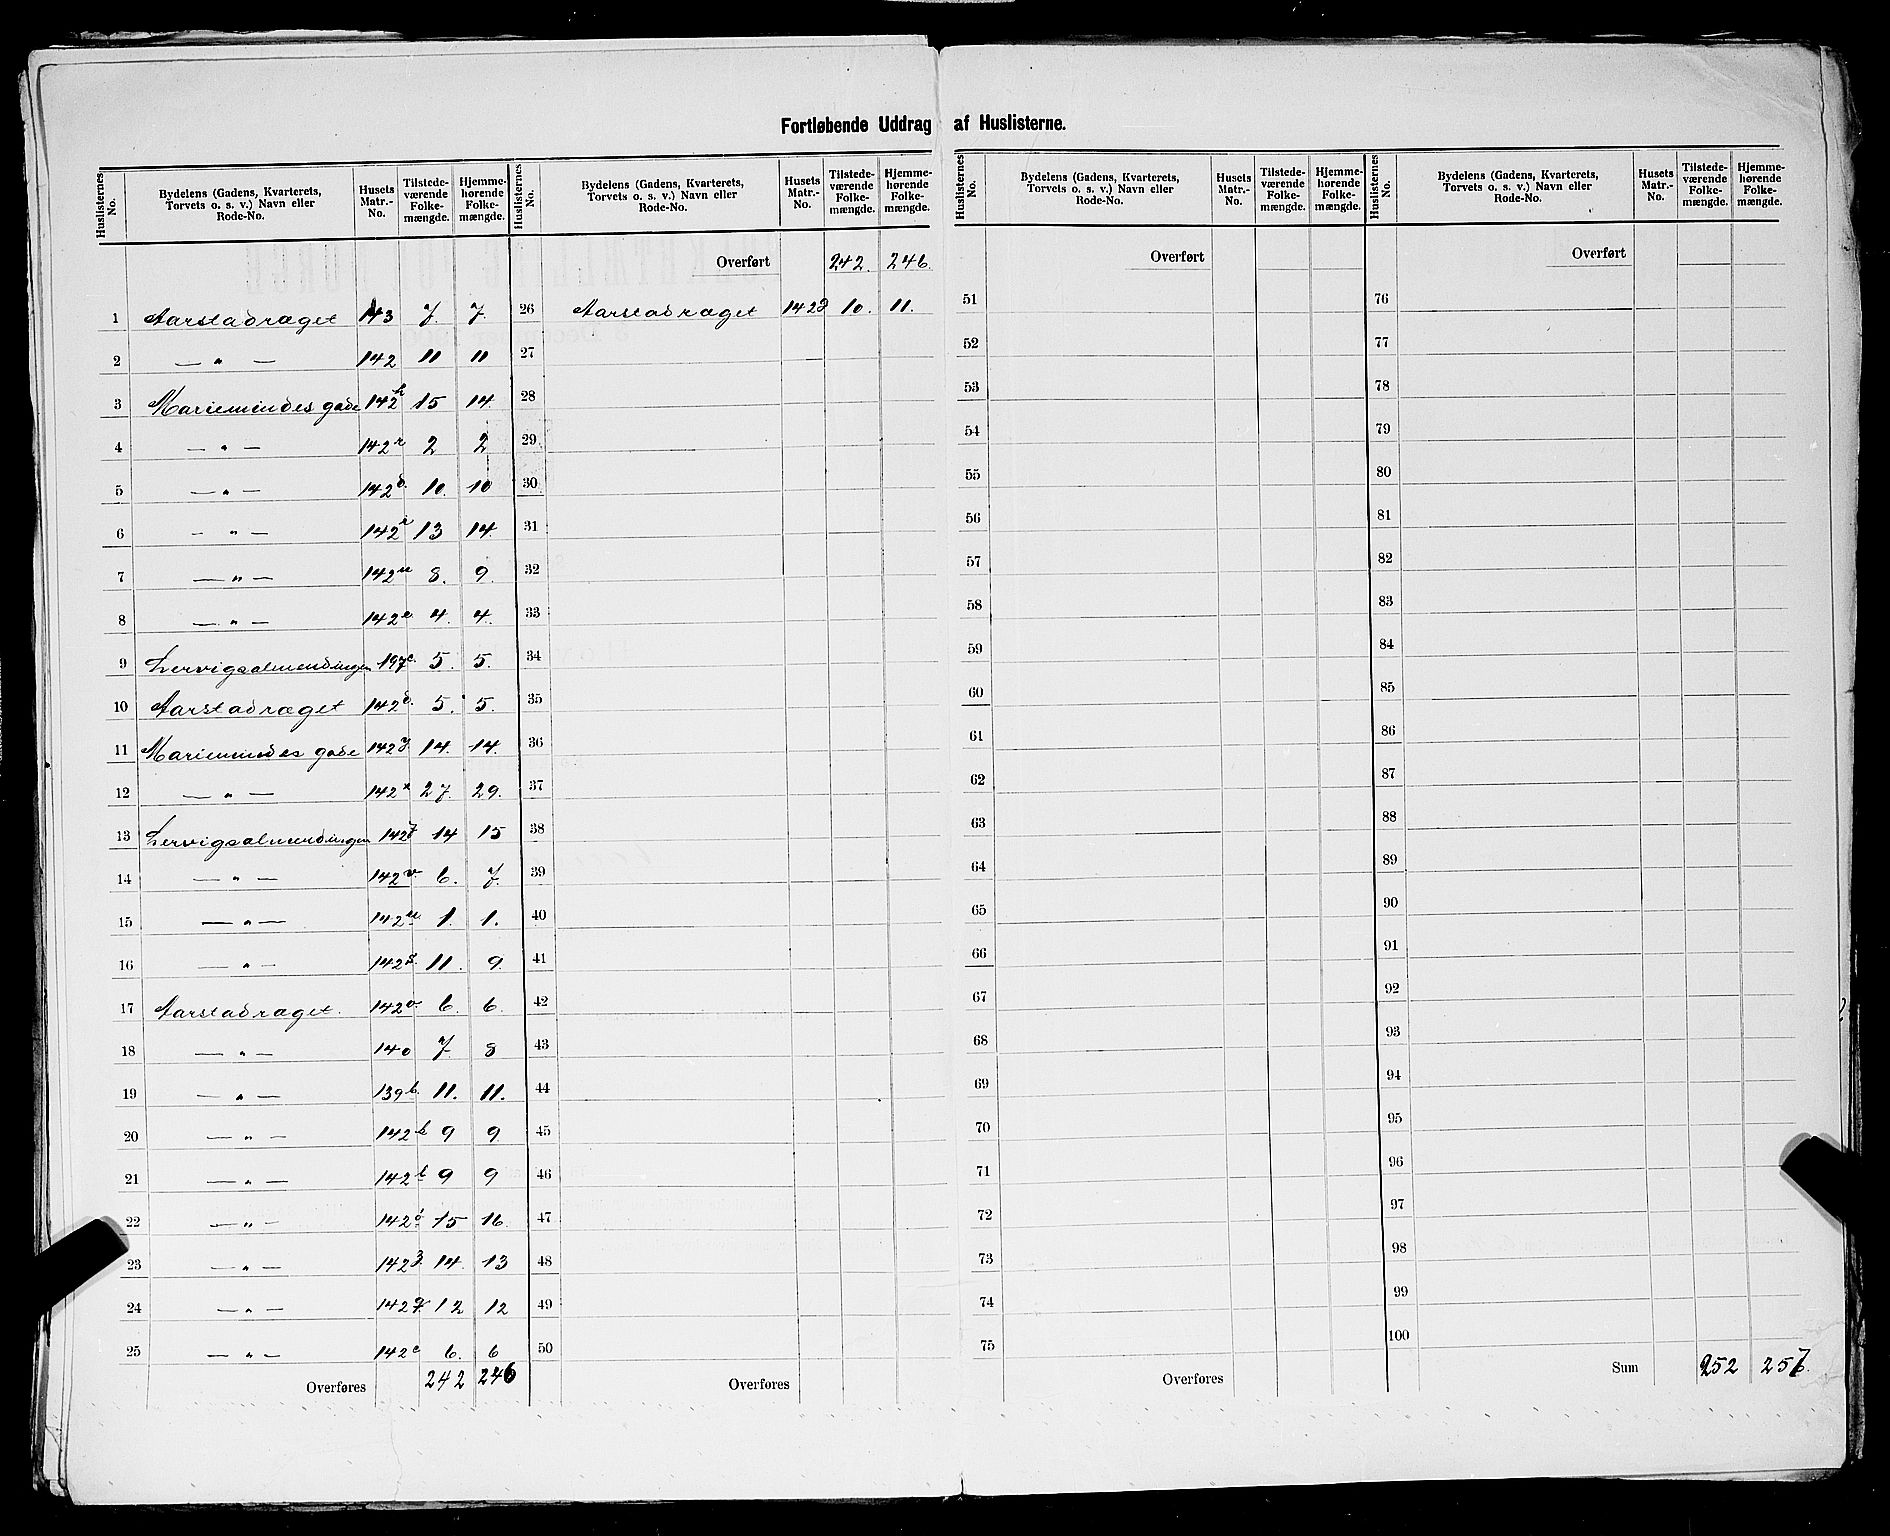 Fortløbende Uddrag af Huslisterne.
Huslisternes No. | Bydelens (Gadens, Kvarterets, Torvets o. s. v.) Navn eller Rode-No. | Husets Matr.-No. | Tilstedeværende Folkemængde. | Hjemmehørende Folkemængde.
1 Aarstadræget 143 7. 7.
2 — " — 142 11 11
3 Mariemindes gade 142 h 15 14.
4 — " — 142 r 2 2
5 — " — 142 10. 10
6 — " — 142 13 14.
7 — " — 142 8. 9.
8 — " — 142 4. 4.
9 Lervigsalmendingen 197 c. 5. 5.
10 Aarstadræget 142 5. 5.
11 Mariemindes gade 142 14. 14.
12 — " — 142 x 27. 29.
13 Lervigsalmendingen 142 14 15
14 — " — 142 v. 6. 7.
15 — " — 142 1. 1.
16 — " — 142 11. 9.
17 Aarstadræget. 142 6. 6.
18 — " — 140 7 8
19 — " — 139 b. 11. 11.
20 — " — 142 9 9
21 — " — 142 9 9
22 — " — 142 15 16.
23 — " — 142 14. 13
24 — " — 142 12 12
25 — " — 142 6. 6
Overføres 242 246
Huslisternes No. | Bydelens (Gadens, Kvarterets, Torvets o. s. v.) Navn eller Rode-No. | Husets Matr.-No. | Tilstedeværende Folkemængde. | Hjemmehørende Folkemængde.
Overført 242. 246.
26 Aarstadræget 142 10. 11.
27
28
29
30
31
32
33
34
35
36
37
38
39
40
41
42
43
44
45
46
47
48
49
50
Overføres
Huslisternes No. | Bydelens (Gadens, Kvarterets, Torvets o. s. v.) Navn eller Rode-No. | Husets Matr.-No. | Tilstedeværende Folkemængde. | Hjemmehørende Folkemængde.
Overført
51
52
53
54
55
56
57
58
59
60
61
62
63
64
65
66
67
68
69
70
71
72
73
74
75
Overføres
Huslisternes No. | Bydelens (Gadens, Kvarterets, Torvets o. s. v.) Navn eller Rode-No. | Husets Matr.-No. | Tilstedeværende Folkemængde. | Hjemmehørende Folkemængde.
Overført
76
77
78
79
80
81
82
83
84
85
86
87
88
89
90
91
92
93
94
95
96
97
98
99
100
Sum 252 257.